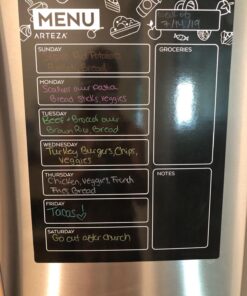 MENU
ARTEZA
7/14/19
SUNDAY
Bread
GROCERIES
MONDAY
our Pasta
Bread sticks, veggies
TUESDAY
Beef + Broccoli over
Brown Rice, Bread
WEDNESDAY
Turkey Burgers, Chips,
Veggies
THURSDAY
Chicken, Veggies, French
Fries, Bread
NOTES
FRIDAY
Tacos
SATURDAY
Go out after church